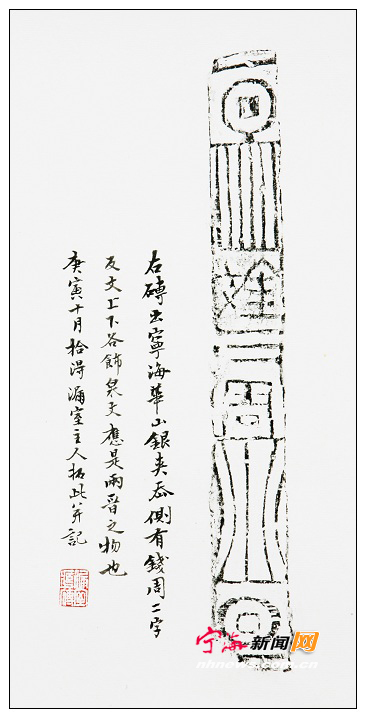 右磚出寧海華山銀夾岙側有錢周二字
反文上下各飾泉文應是兩晉之物也
庚寅十月拾得漏室主人拓此并記
宁海新闻网
nhnews.com.cn